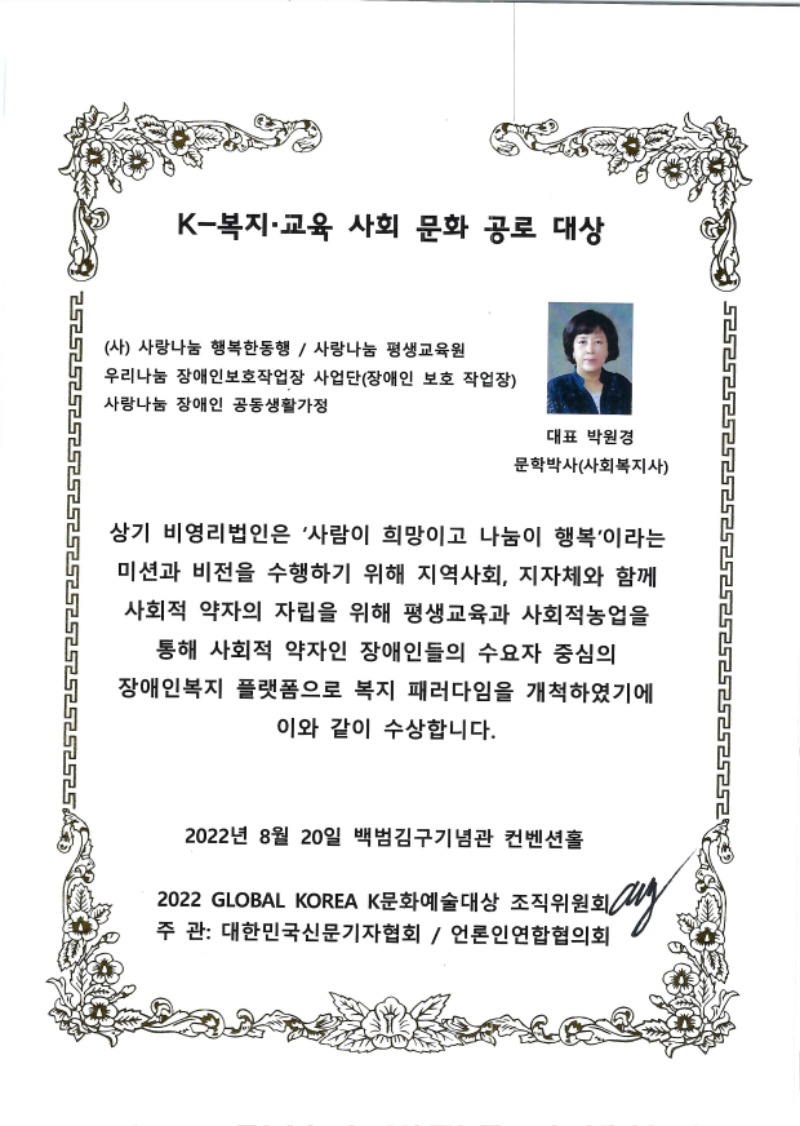 K-복지·교육 사회 문화 공로 대상
(사) 사랑나눔 행복한동행 / 사랑나눔 평생교육원
우리나눔 장애인보호작업장 사업단(장애인 보호 작업장)
사랑나눔 장애인 공동생활가정
대표 박원경
문학박사(사회복지사)
상기 비영리법인은 '사람이 희망이고 나눔이 행복'이라는
미션과 비전을 수행하기 위해 지역사회, 지자체와 함께
사회적 약자의 자립을 위해 평생교육과 사회적농업을
통해 사회적 약자인 장애인들의 수요자 중심의
장애인복지 플랫폼으로 복지 패러다임을 개척하였기에
이와 같이 수상합니다.
2022년 8월 20일 백범김구기념관 컨벤션홀
2022 GLOBAL KOREA K문화예술대상 조직위원회
주 관: 대한민국신문기자협회 / 언론인연합협의회